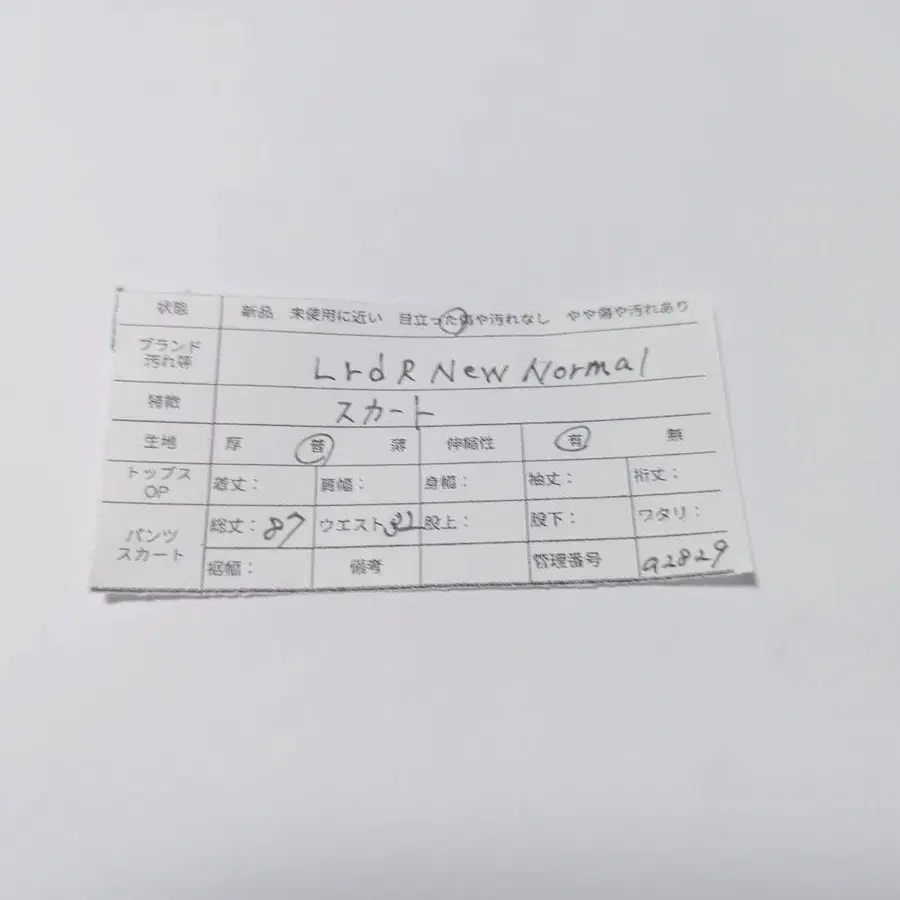 状態 新品 未使用に近い 目立った傷や汚れなし やや傷や汚れあり
ブランド
汚れ等 LrdR New Normal
特徴 スカート
生地 厚 普 薄 伸縮性 有 無
トップス
OP 着丈： 肩幅： 身幅： 袖丈： 裄丈：
パンツ
スカート 総丈：87 ウエスト32 股上： 股下： ワタリ：
裾幅： 備考 管理番号 a2829